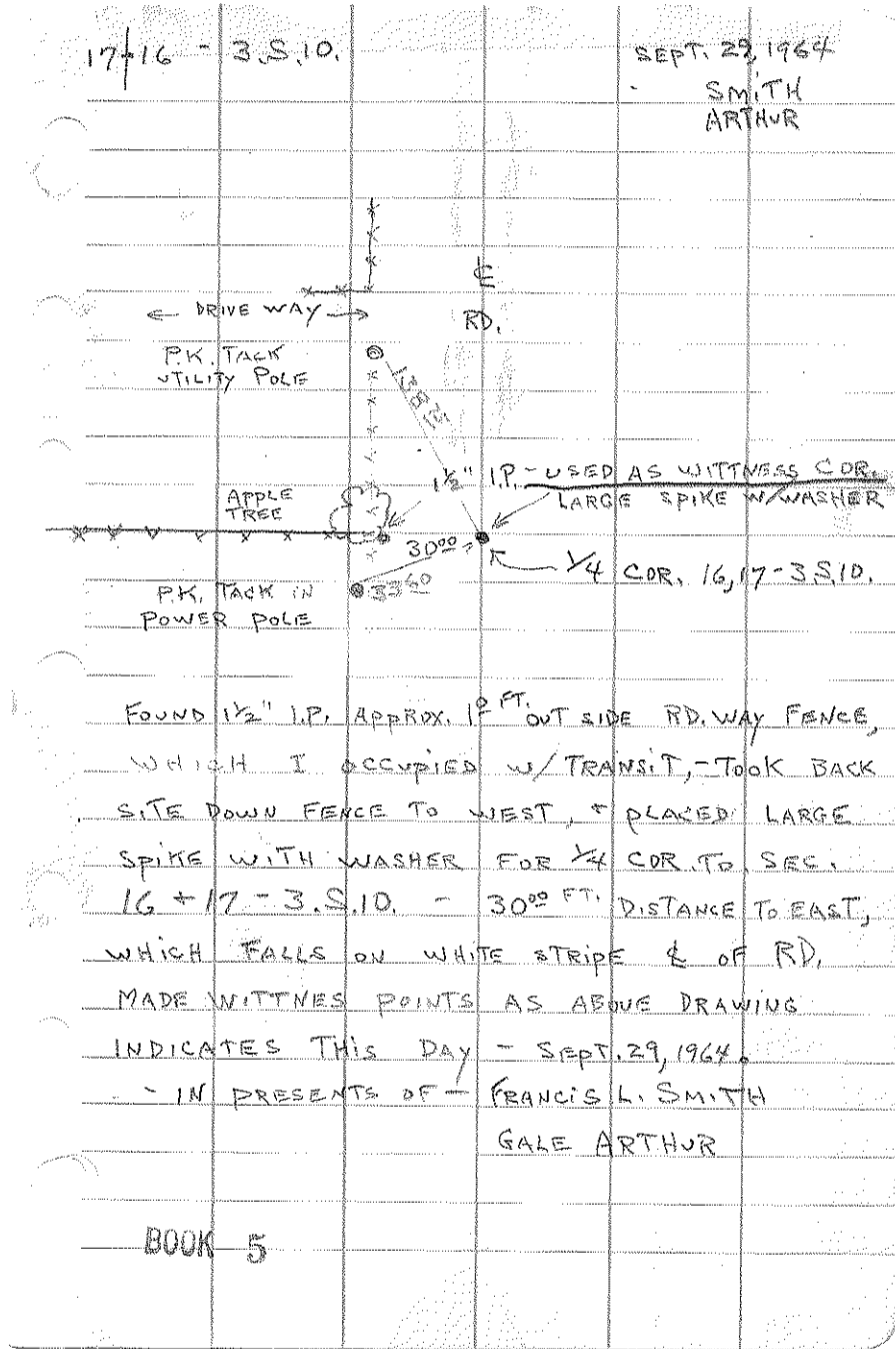 17+16 - 3.S.10.
SEPT. 29, 1964
SMITH
ARTHUR
℄
← DRIVE WAY →
RD.
P.K. TACK
UTILITY POLE
1½" I.P. - USED AS WITTNESS COR.
LARGE SPIKE W/WASHER
APPLE
TREE
30⁰⁰
¼ COR. 16,17-3.S.10.
P.K. TACK IN
POWER POLE
33⁶⁰
FOUND 1½" I.P. APPROX. 1⁰ FT. OUT SIDE RD. WAY FENCE,
WHICH I OCCUPIED W/ TRANSIT, - TOOK BACK
SITE DOWN FENCE TO WEST, + PLACED LARGE
SPIKE WITH WASHER FOR ¼ COR. TO SEC.
16 + 17 - 3.S.10. - 30⁰⁰ FT. DISTANCE TO EAST,
WHICH FALLS ON WHITE STRIPE ℄ OF RD.
MADE WITTNES POINTS AS ABOVE DRAWING
INDICATES THIS DAY - SEPT. 29, 1964.
- IN PRESENTS OF - FRANCIS L. SMITH
GALE ARTHUR
BOOK 5